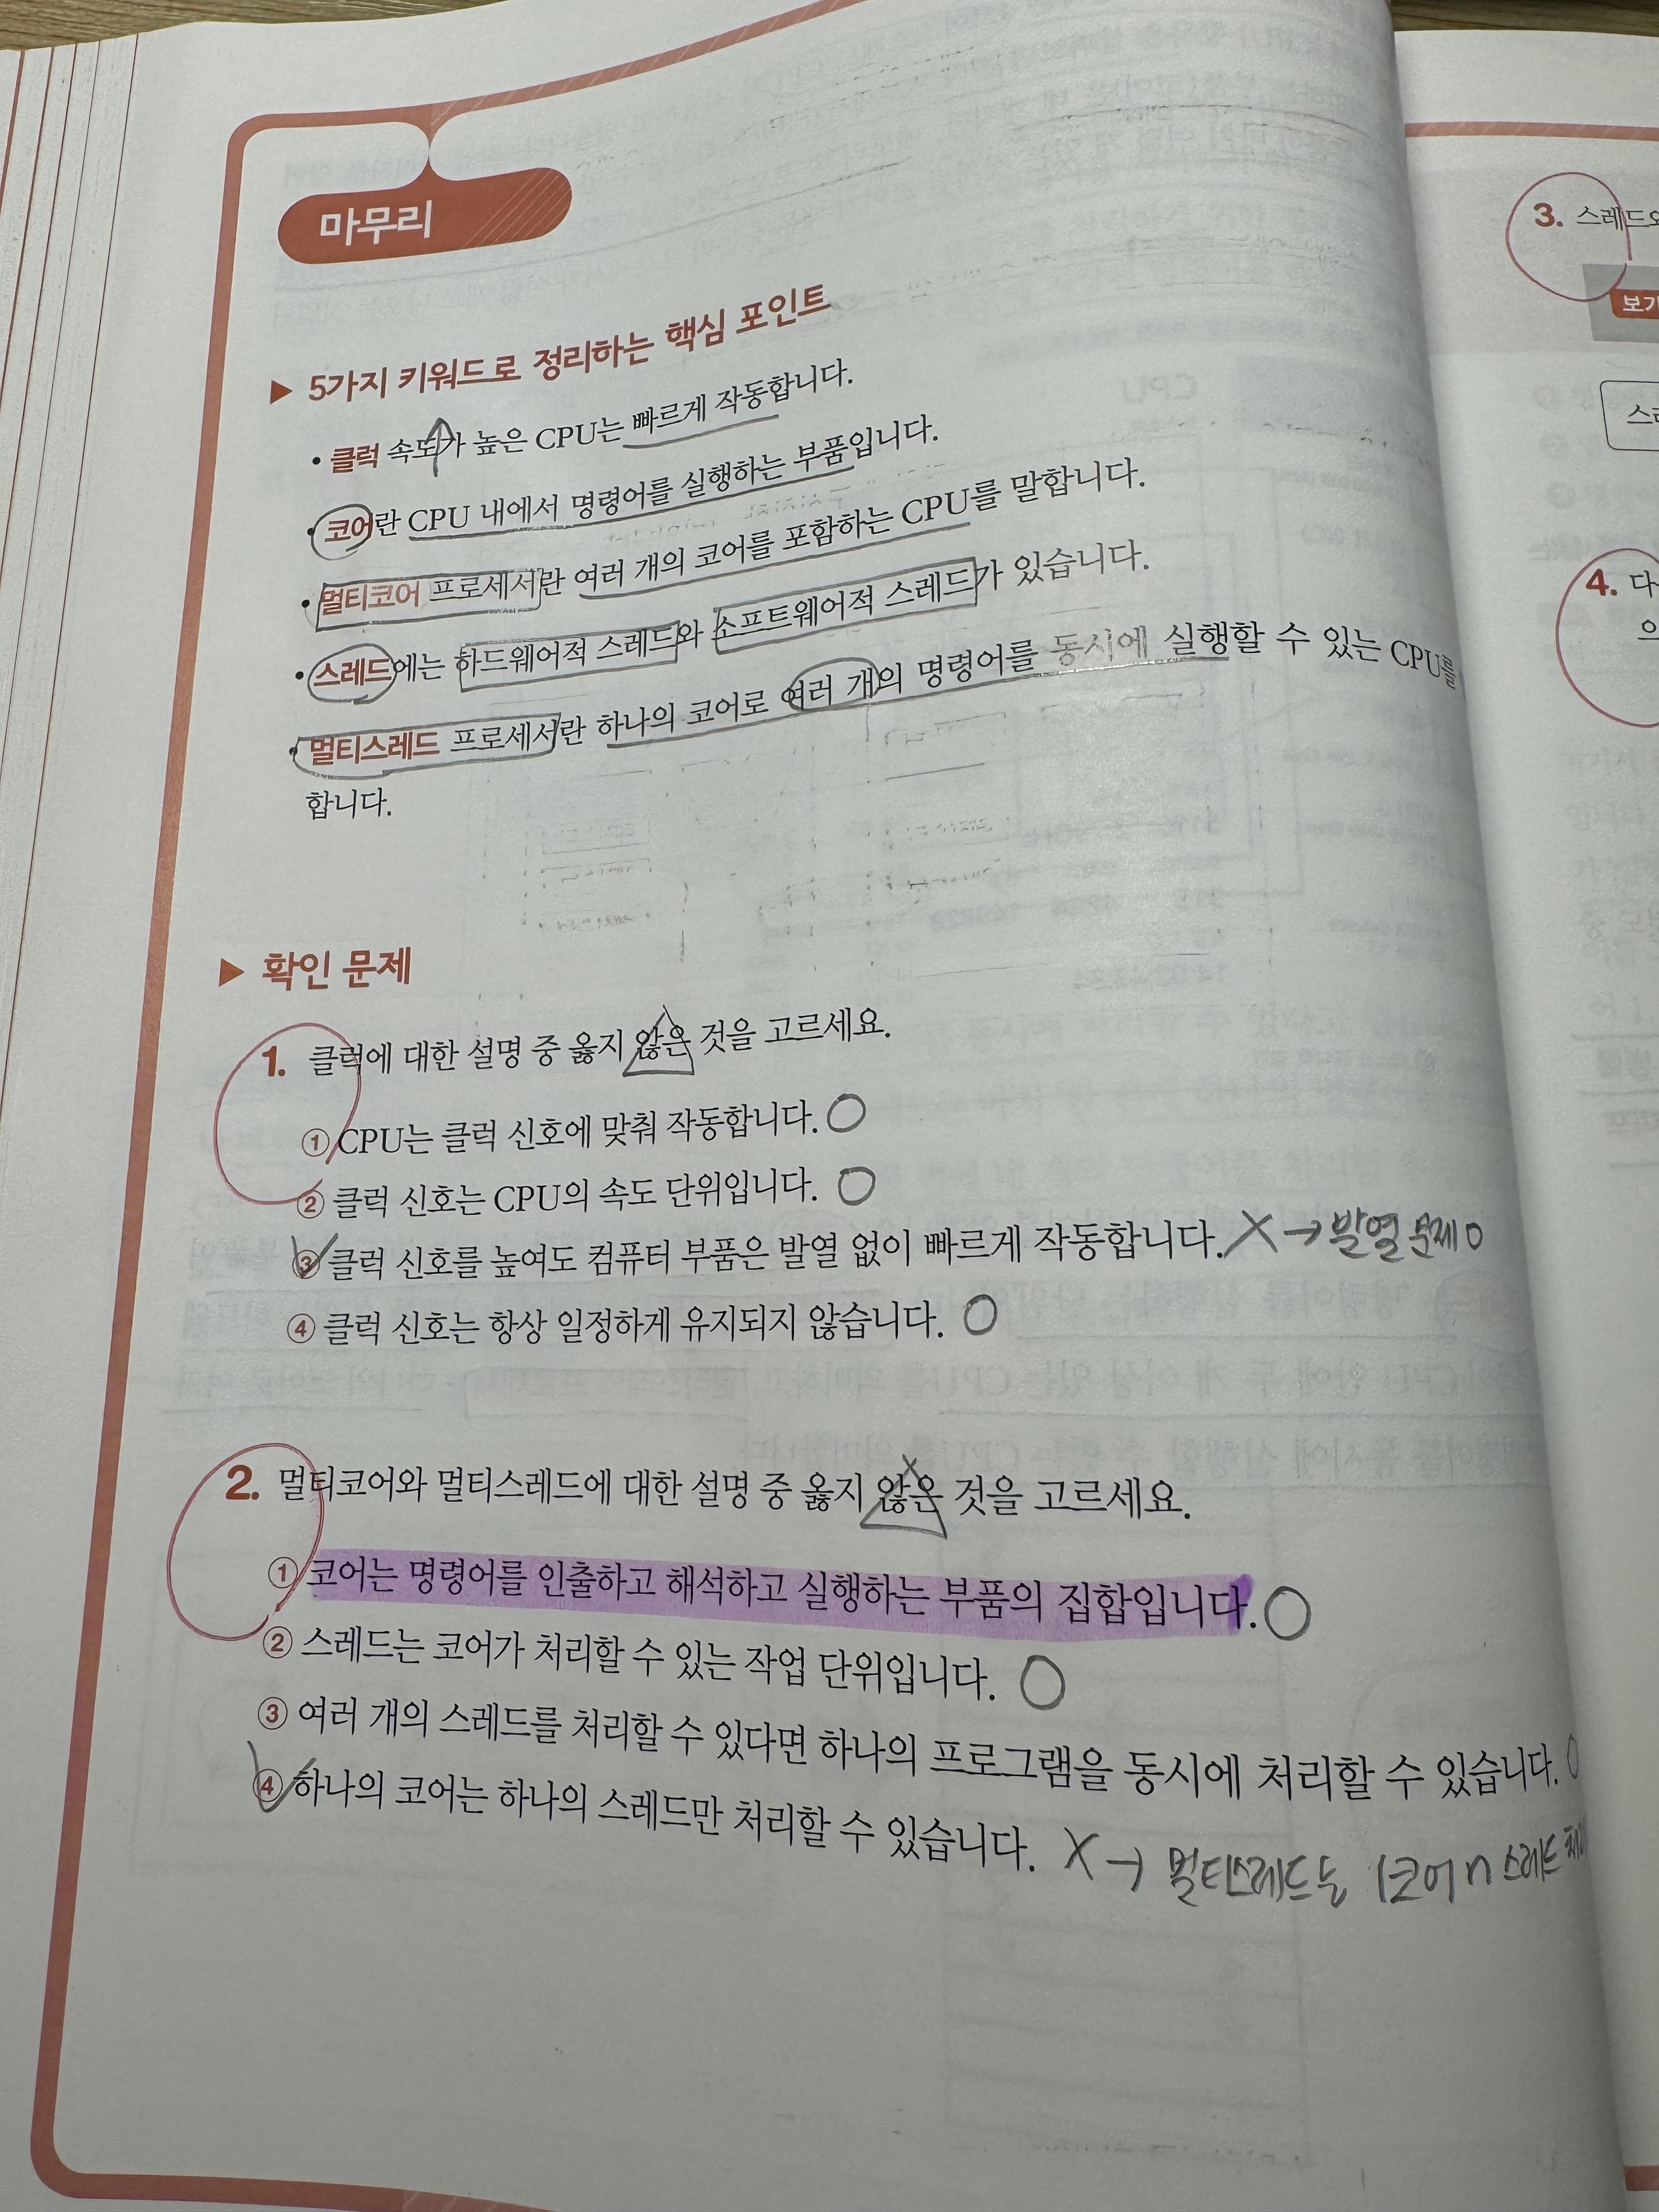 마무리
▶ 5가지 키워드로 정리하는 핵심 포인트
• 클럭 속도가 높은 CPU는 빠르게 작동합니다.
• 코어란 CPU 내에서 명령어를 실행하는 부품입니다.
• 멀티코어 프로세서란 여러 개의 코어를 포함하는 CPU를 말합니다.
• 스레드에는 하드웨어적 스레드와 소프트웨어적 스레드가 있습니다.
• 멀티스레드 프로세서란 하나의 코어로 여러 개의 명령어를 동시에 실행할 수 있는 CPU를
합니다.
▶ 확인 문제
1. 클럭에 대한 설명 중 옳지 않은 것을 고르세요.
① CPU는 클럭 신호에 맞춰 작동합니다. ○
② 클럭 신호는 CPU의 속도 단위입니다. ○
③ 클럭 신호를 높여도 컴퓨터 부품은 발열 없이 빠르게 작동합니다. X → 발열 문제 O
④ 클럭 신호는 항상 일정하게 유지되지 않습니다. ○
2. 멀티코어와 멀티스레드에 대한 설명 중 옳지 않은 것을 고르세요.
① 코어는 명령어를 인출하고 해석하고 실행하는 부품의 집합입니다. ○
② 스레드는 코어가 처리할 수 있는 작업 단위입니다. ○
③ 여러 개의 스레드를 처리할 수 있다면 하나의 프로그램을 동시에 처리할 수 있습니다. ○
④ 하나의 코어는 하나의 스레드만 처리할 수 있습니다. X → 멀티스레드는 1코어 n 스레드
3. 스레드와
보기
4. 다